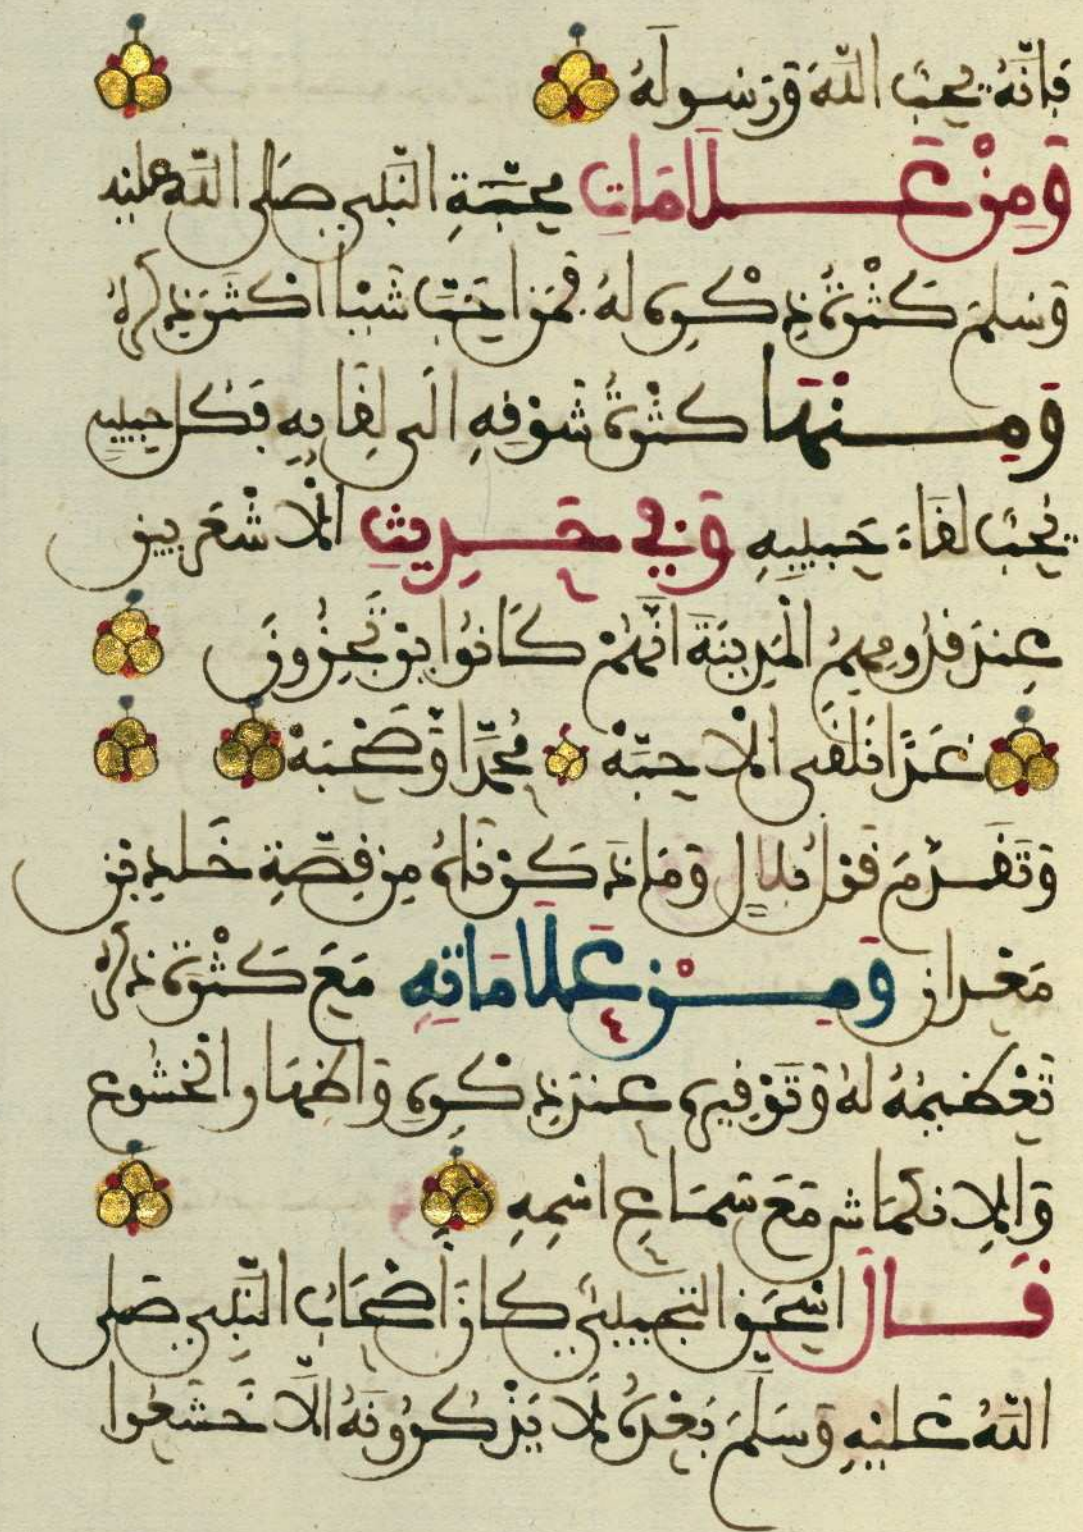 فإنه يحب الله ورسوله
ومن علامات محبة النبي صلى الله عليه
وسلم كثرة ذكره له فمن احب شيئا اكثر ذكره
ومنها كثرة شوقه الى لقايه فكل حبيب
يحب لقاء حبيبه وفي حديث الاشعريين
عند قدومهم المدينة انهم كانوا يرتجزون
غدا نلقى الاحبه محمدا وصحبه
وتقدم قول بلال وما ذكرناه من قصة خلد بن
معدان ومن علاماته مع كثرة ذكره
تعظيمه له وتوقيره عند ذكره واظهار الخشوع
والانكماش مع سماع اسمه
قال اسحق التجيبي كان أصحاب النبي صلى
الله عليه وسلم بعده لا يذكرونه الا خشعوا